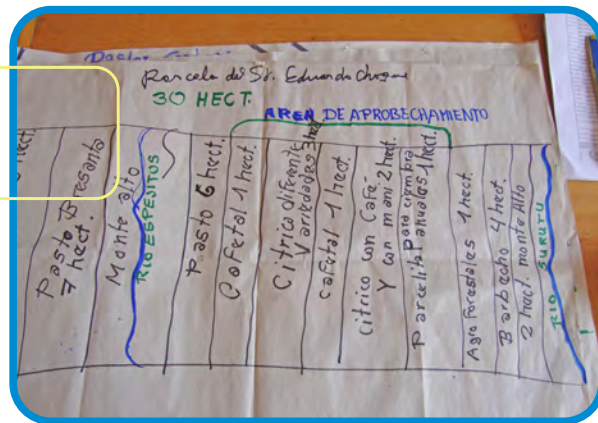 Parcela del Sr. Eduardo Choque
30 HECT.
AREA DE APROBECHAMIENTO
hect.
Pasto Bresanta
7 hect.
Monte alto
RIO ESPEJITOS
Pasto 6 hect.
Cafetal 1 hect.
Citrico diferente
Variedades 3 hect
cafetal 1 hect.
Citrico con Café
Y con mani 2 hect.
Parcelita Para ciembra
anuales 1 hect.
Agro Forestales 1 hect.
Barbecho 4 hect.
2 hect. monte Alto
RIO SURUTU